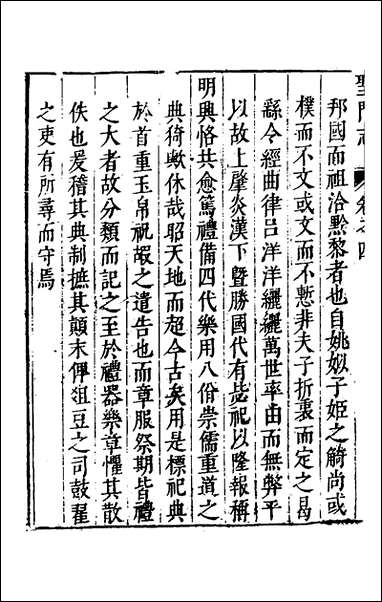 聖門志 卷之四
邦國而祖洽黔黎者也自姚姒子姬之觭尚或
樸而不文或文而不慙非夫子折衷而定之曷
繇令經曲律呂洋洋纚纚萬世率由而無弊乎
以故上肇炎漢下曁勝國代有毖祀以隆報稱
明興恪共愈篤禮備四代樂用八佾崇儒重道之
典猗歟休哉昭天地而超今古矣用是標祀典
於首重玉帛祝嘏之遺告也而章服祭期皆禮
之大者故分類而記之至於禮器樂章懼其散
佚也爰稽其典制摭其顛末俾俎豆之司鼓翟
之吏有所尋而守焉